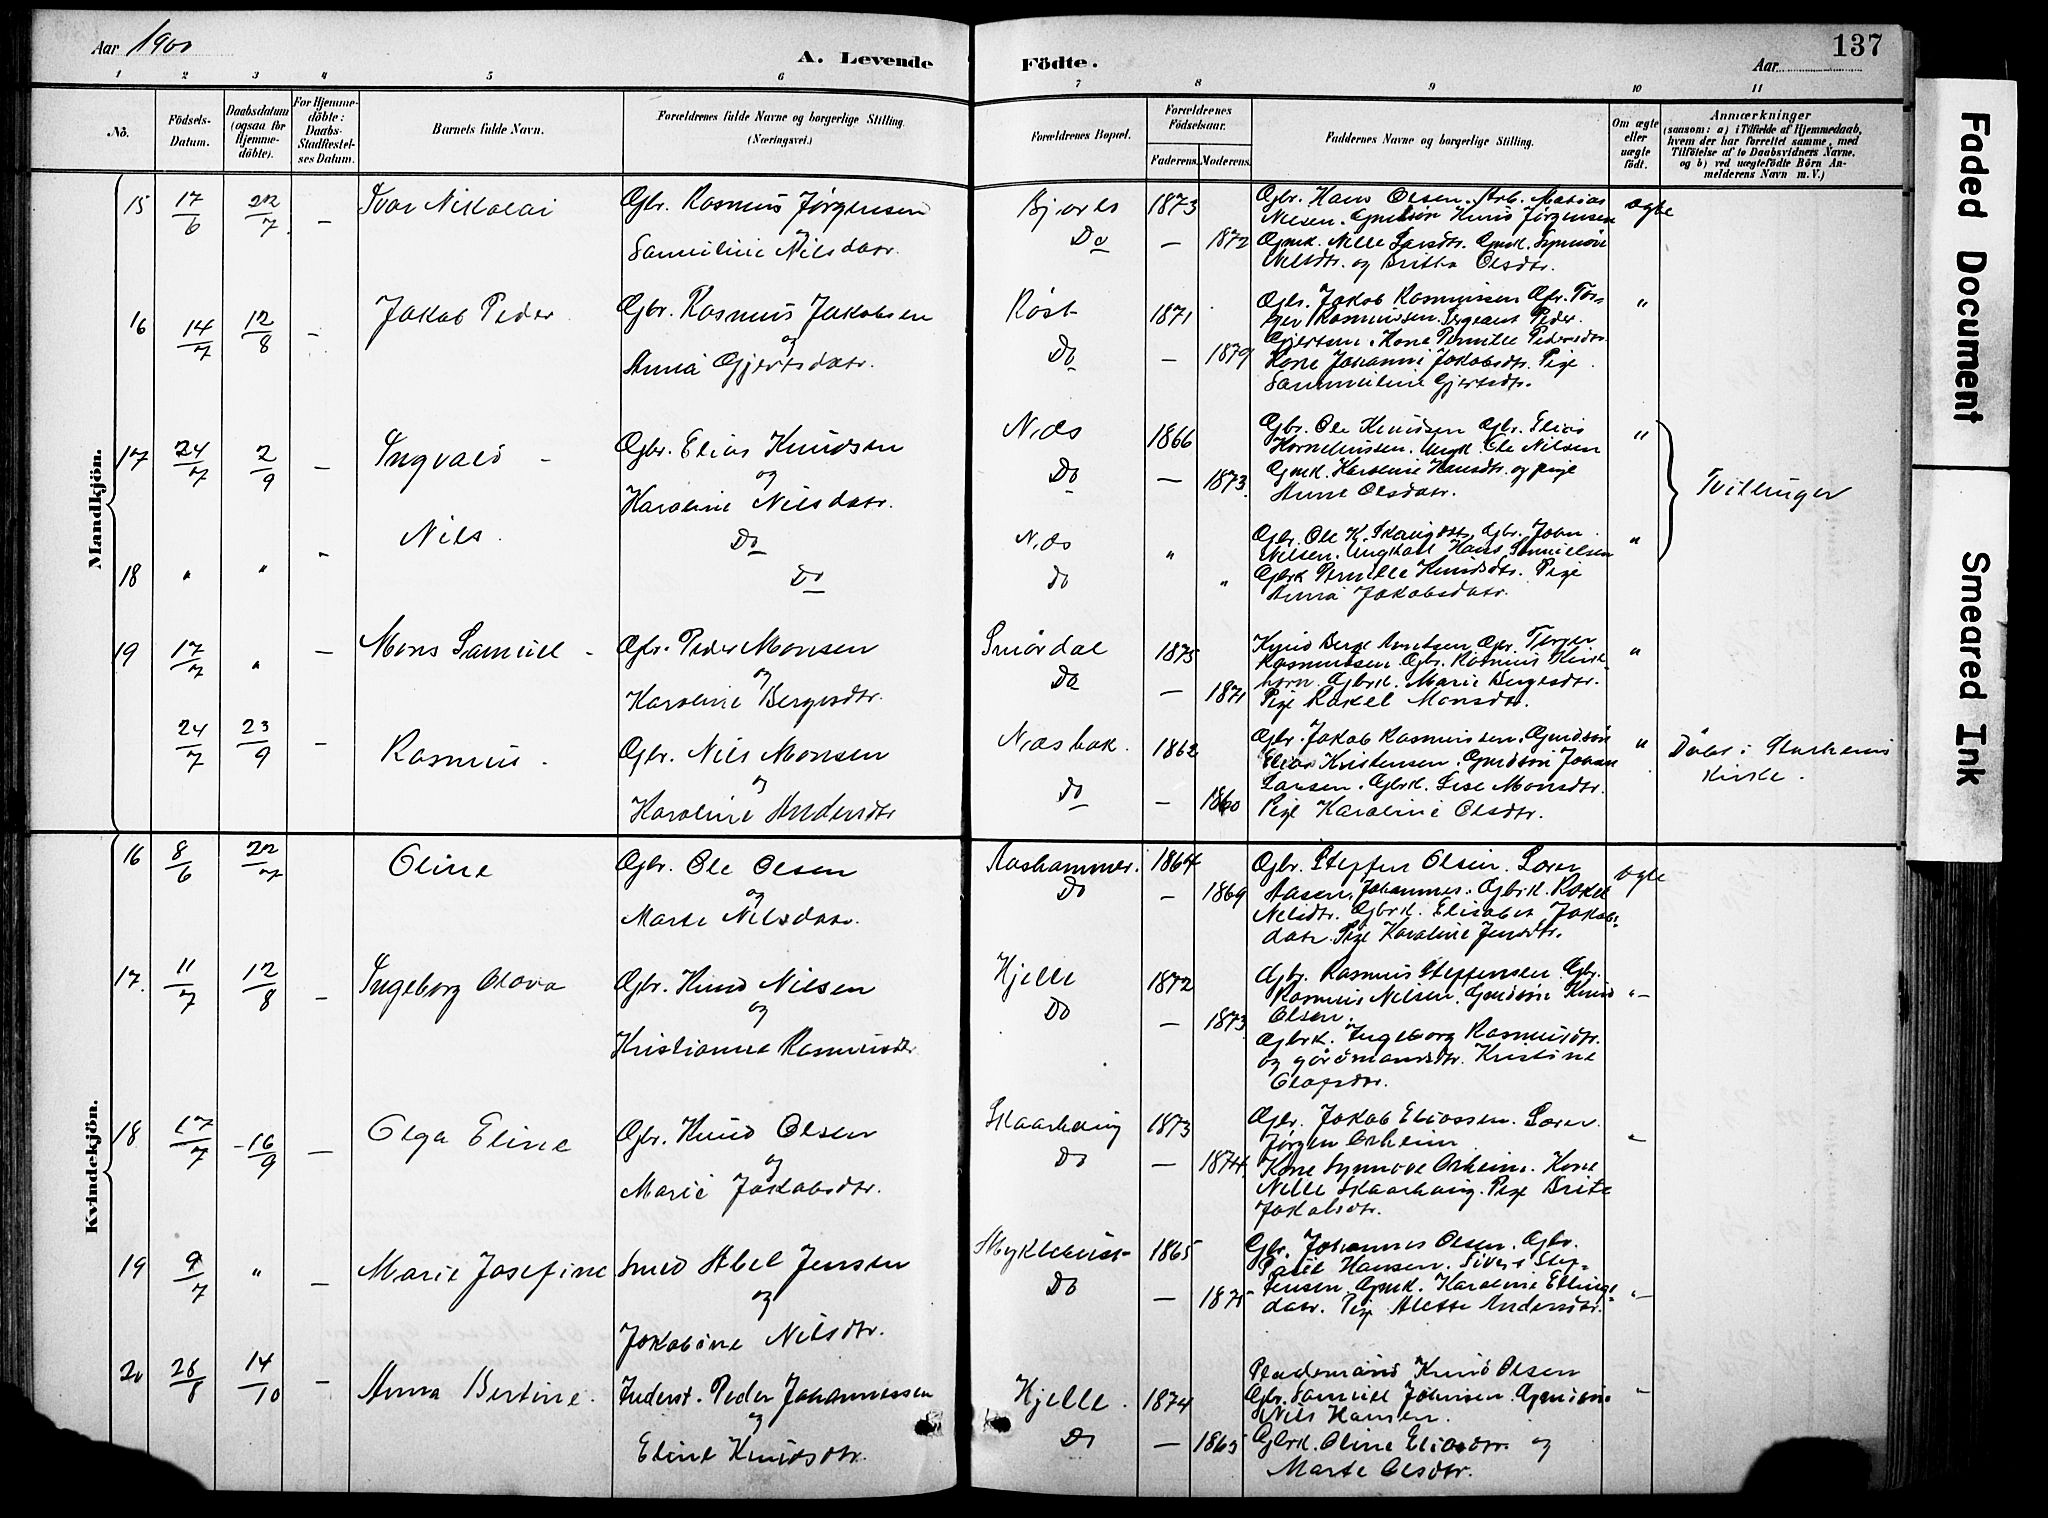 Aar 1900
A. Levende
Födte.
Aar
137
1 2 3 4 5 6 7 8 9 10 11
No.
Födsels-Datum.
Daabsdatum (ogsaa for Hjemme-döbte).
For Hjemme-döbte: Daabs-Stadfestel-ses Datum.
Barnets fulde Navn.
Forældrenes fulde Navne og borgerlige Stilling.
(Næringsvei.)
Forældrenes Bopæl.
Forældrenes Födselsaar.
Faderens. Moderens.
Faddernes Navne og borgerlige Stilling.
Om ægte eller uægte födt.
Anmærkninger
(saasom: a) i Tilfælde af Hjemmedaab,
hvem der har forrettet samme, med
Tilföielse af to Daabsvidners Navne,
og b) ved uægtefödte Börn An-
melderens Navn m. V.)
Mandkjön.
15 17/6 22/7 – Ivar Nikolai
Gbr. Rasmus Jørgensen
Samueline Nilsdatr.
Do 1873
– 1872
Gbr. Hans Olsen. Arb. Matias
Nilsen. Gmdsön Knud Jørgensen
Gmk. Nille Larsdtr. Gmk. Synnöve
Nilsdtr. og Britha Olsdtr.
ægte
16 14/7 12/8 – Jakob Peder
Gbr. Rasmus Jakobsen
og
Anna Gjertsdatr.
Röst 1871
Do – 1879
Gbr. Jakob Rasmussen Gbr. Tor-
ger Rasmussen. Sergeant Peder
Gjertsen. Kone Pernille Pedersdtr.
Kone Johanne Jakobsdtr. Pige
Sammueline Gjertsdtr.
"
17 24/7 2/9 – Ingvald
Gbr. Elias Knudsen
og
Karoline Nilsdatr.
Næs 1866
Do – 1873.
Gbr. Ole Knudsen Gbr. Elias
Korneliussen. Ungk. Ole Nilsen
Gmk. Karoline Hansdtr. og pige
Anne Olsdatr.
"
Tvillinger
18 " " Nils.
Do
Do
Næs "
do "
Gbr. Ole K. Gbr. John
Nilsen. Ungkarl Hans Samuelsen
Gbrk Pernille Knudsdtr. Pige
Anna Jakobsdatr.
"
19 17/7 " – Mons Samuel
Gbr. Peder Monsen
og
Karoline Bergesdtr.
Smördal 1875
Do – 1871
Berge Gbr. Torger
Rasmussen. Gbr. Rasmus Kirk-
horn. Gbrk. Marie Bergesdtr.
Pige Rakel Monsdtr.
"
24/7 23/9 – Rasmus
Gbr. Nils Monsen
og
Karoline Andersdtr
Næsbak. 1862
Do – 1860
Gbr. Jakob Rasmussen. Gmdsön
Elias Kristensen. Gmdsön Johan
Larsen. Gbrk. Lise Monsdtr.
Pige Karoline Olsdtr.
"
Döbt i Starheims
Kirke.
Kvindekjön.
16 8/6 22/7 Oline
Gbr. Ole Olsen
og
Marte Nilsdatr.
Aashammer. 1864
Do – 1869
Gbr. Steffen Olsen. Lorer
Aasen, Johannes. Gbrk. Rakel
Nelsdtr. Gbrk. Elisabet Jakobs-
datr. Pige Karoline Jensdtr.
ægte
17. 11/7 12/8 – Ingeborg Olava
Gbr. Knud Nilsen
og
Kristianne Rasmusdtr
Hjelle 1872
Do – 1873
Gbr. Rasmus Steffensen. Gbr.
Rasmus Nilsen. Gmdsön Knud
Olsen.
Gbrk. Ingeborg Rasmusdtr.
og gårdmandsdtr. Kristine
Olafsdtr.
"
18 17/7 16/9 – Olga Eline
Gbr. Knud Olsen
og
Marie Jakobsdtr.
Skaarhaug 1873
Do – 1874
Gbr. Jakob Eliassen. Lorer
Jörgen Orheim
Kone Synnove Orheim. Kone
Nille Skaarhaug. Pige Brite
Jakobsdtr.
19 9/7 " – Marie Josefine
Smed Abel Jensen
og
Jakobine Nilsdtr.
Myklebust 1865
Do – 1875
Gbr. Johannes Olsen. Gbr.
Paul Hansen. Sivert Stef-
fensen Gmk. Karoline Ellings-
datr. Pige Alette Andersdtr.
20 26/8 14/10 – Anna Bertine.
Inderst. Peder Johannessen
og
Eline Knudsdtr.
Hjelle. 1874
Do – 1865
Pladsmand Knud Olsen
Gbr. Samuel Johnsen. Gmdsön
Nils Hansen.
Gbrk. Oline Eliasdtr. og
Marte Olsdtr.
Faded Document
Smeared Ink